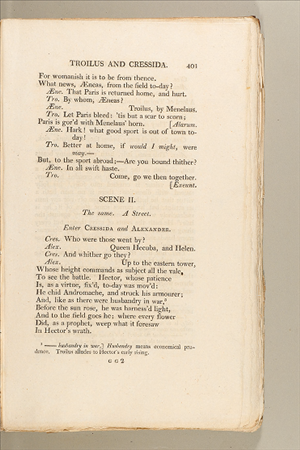 TROILUS AND CRESSIDA. 401
For womanish it is to be from thence.
What news, Æneas, from the field to-day?
Æne. That Paris is returned home, and hurt.
Tro. By whom, Æneas?
Æne. Troilus, by Menelaus.
Tro. Let Paris bleed: 'tis but a scar to scorn;
Paris is gor'd with Menelaus' horn. [Alarum.
Æne. Hark! what good sport is out of town to-
day!
Tro. Better at home, if would I might, were
may.—
But, to the sport abroad;—Are you bound thither?
Æne. In all swift haste.
Tro. Come, go we then together.
[Exeunt.
SCENE II.
The same. A Street.
Enter CRESSIDA and ALEXANDER.
Cres. Who were those went by?
Alex. Queen Hecuba, and Helen.
Cres. And whither go they?
Alex. Up to the eastern tower,
Whose height commands as subject all the vale,
To see the battle. Hector, whose patience
Is, as a virtue, fix'd, to-day was mov'd:
He chid Andromache, and struck his armourer;
And, like as there were husbandry in war,¹
Before the sun rose, he was harness'd light,
And to the field goes he; where every flower
Did, as a prophet, weep what it foresaw
In Hector's wrath.
¹ —— husbandry in war,] Husbandry means economical pru-
dence. Troilus alludes to Hector's early rising.
G G 2